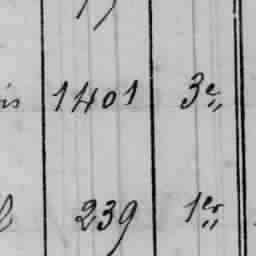 1401 3e
239 1er